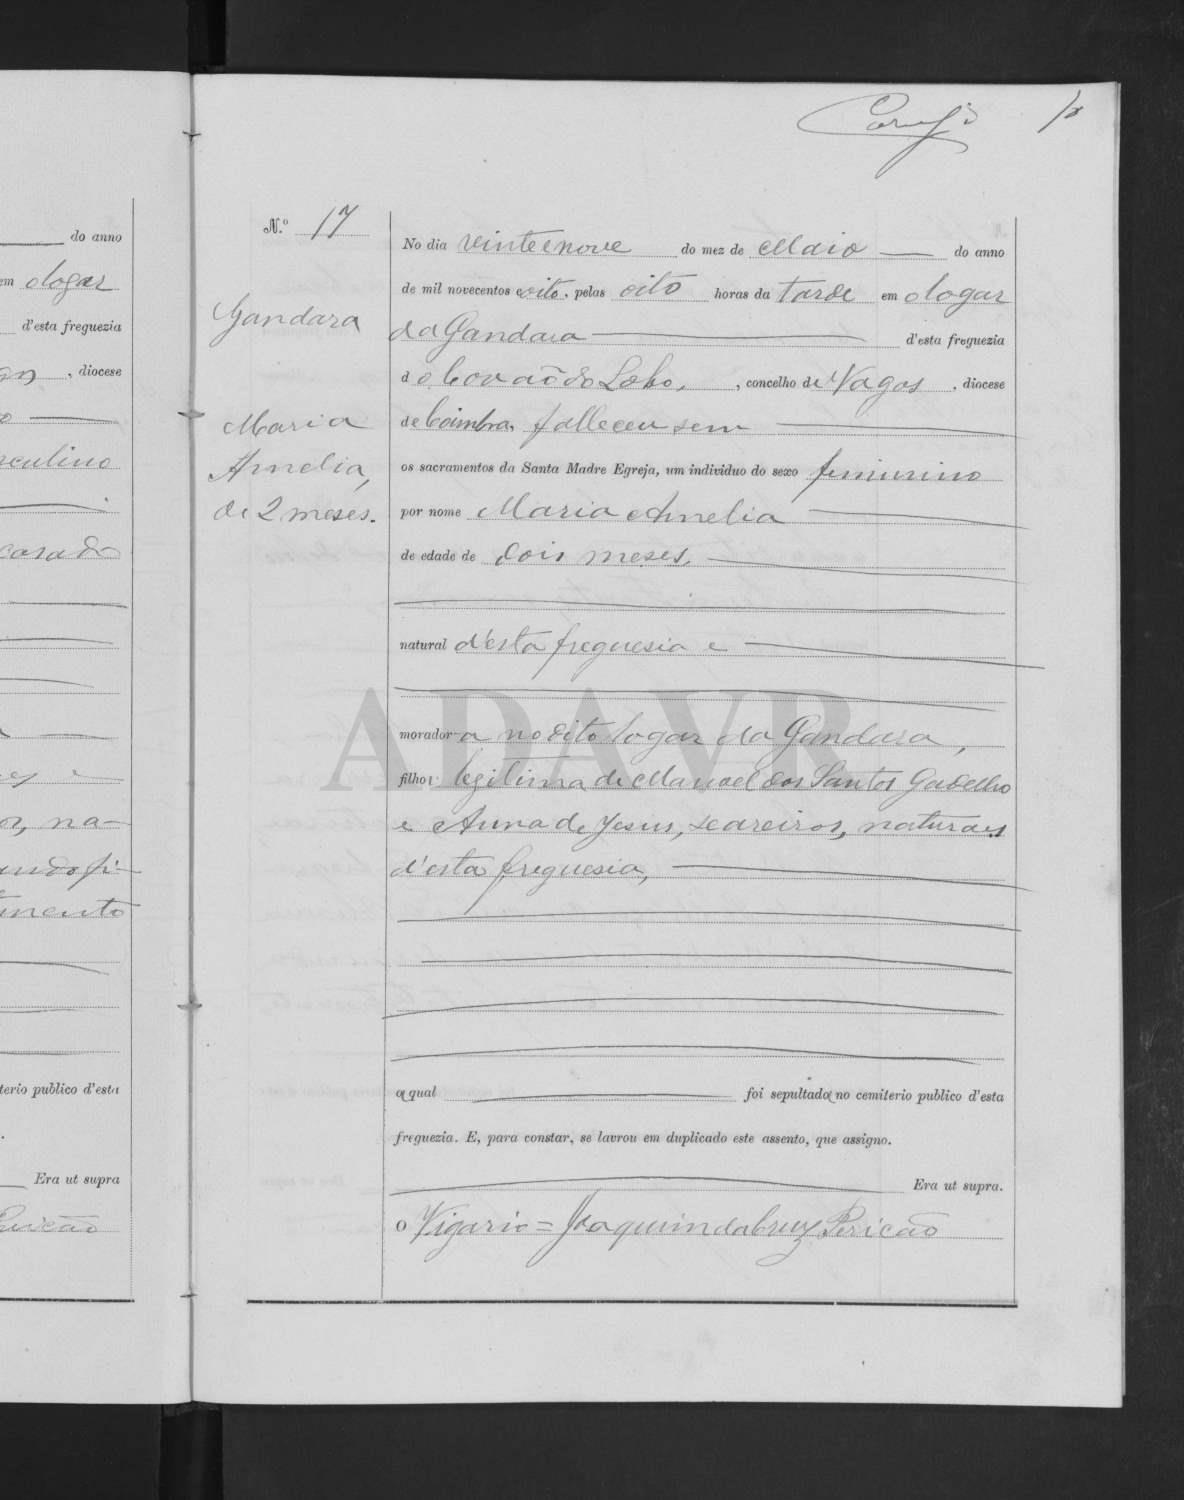 do anno
em o logar
d'esta freguezia
, diocese
casado
terio publico d'esta
Era ut supra
N.º 17
Gandara
Maria
Amelia,
de 2 meses.
No dia vinte e nove do mez de Maio do anno
de mil novecentos e oito, pelas oito horas da tarde em o logar
da Gandara d'esta freguezia
de o Covão do Lobo, , concelho de Vagos , diocese
de Coimbra, falleceu sem
os sacramentos da Santa Madre Egreja, um individuo do sexo feminino
por nome Maria Amelia
de edade de dois meses,
natural d'esta freguesia e
morador a no dito logar da Gandara,
filha legitima de Manoel dos Santos Gadelho
e Anna de Jesus, seareiros, naturaes
d'esta freguesia,
a qual foi sepultada no cemiterio publico d'esta
freguezia. E, para constar, se lavrou em duplicado este assento, que assigno.
Era ut supra.
O Vigario = Joaquim da Cruz Pericão
ADAVR